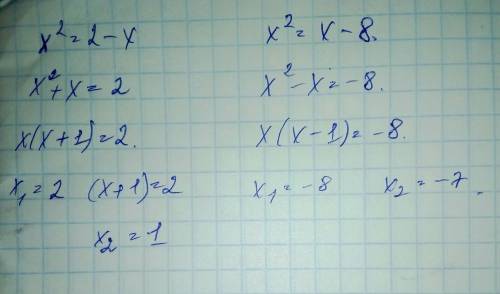 x² = 2 - x
x² + x = 2
x(x+1) = 2.
x₁ = 2 (x+1) = 2
x₂ = 1
x² = x - 8.
x² - x = -8.
x(x-1) = -8.
x₁ = -8 x₂ = -7.